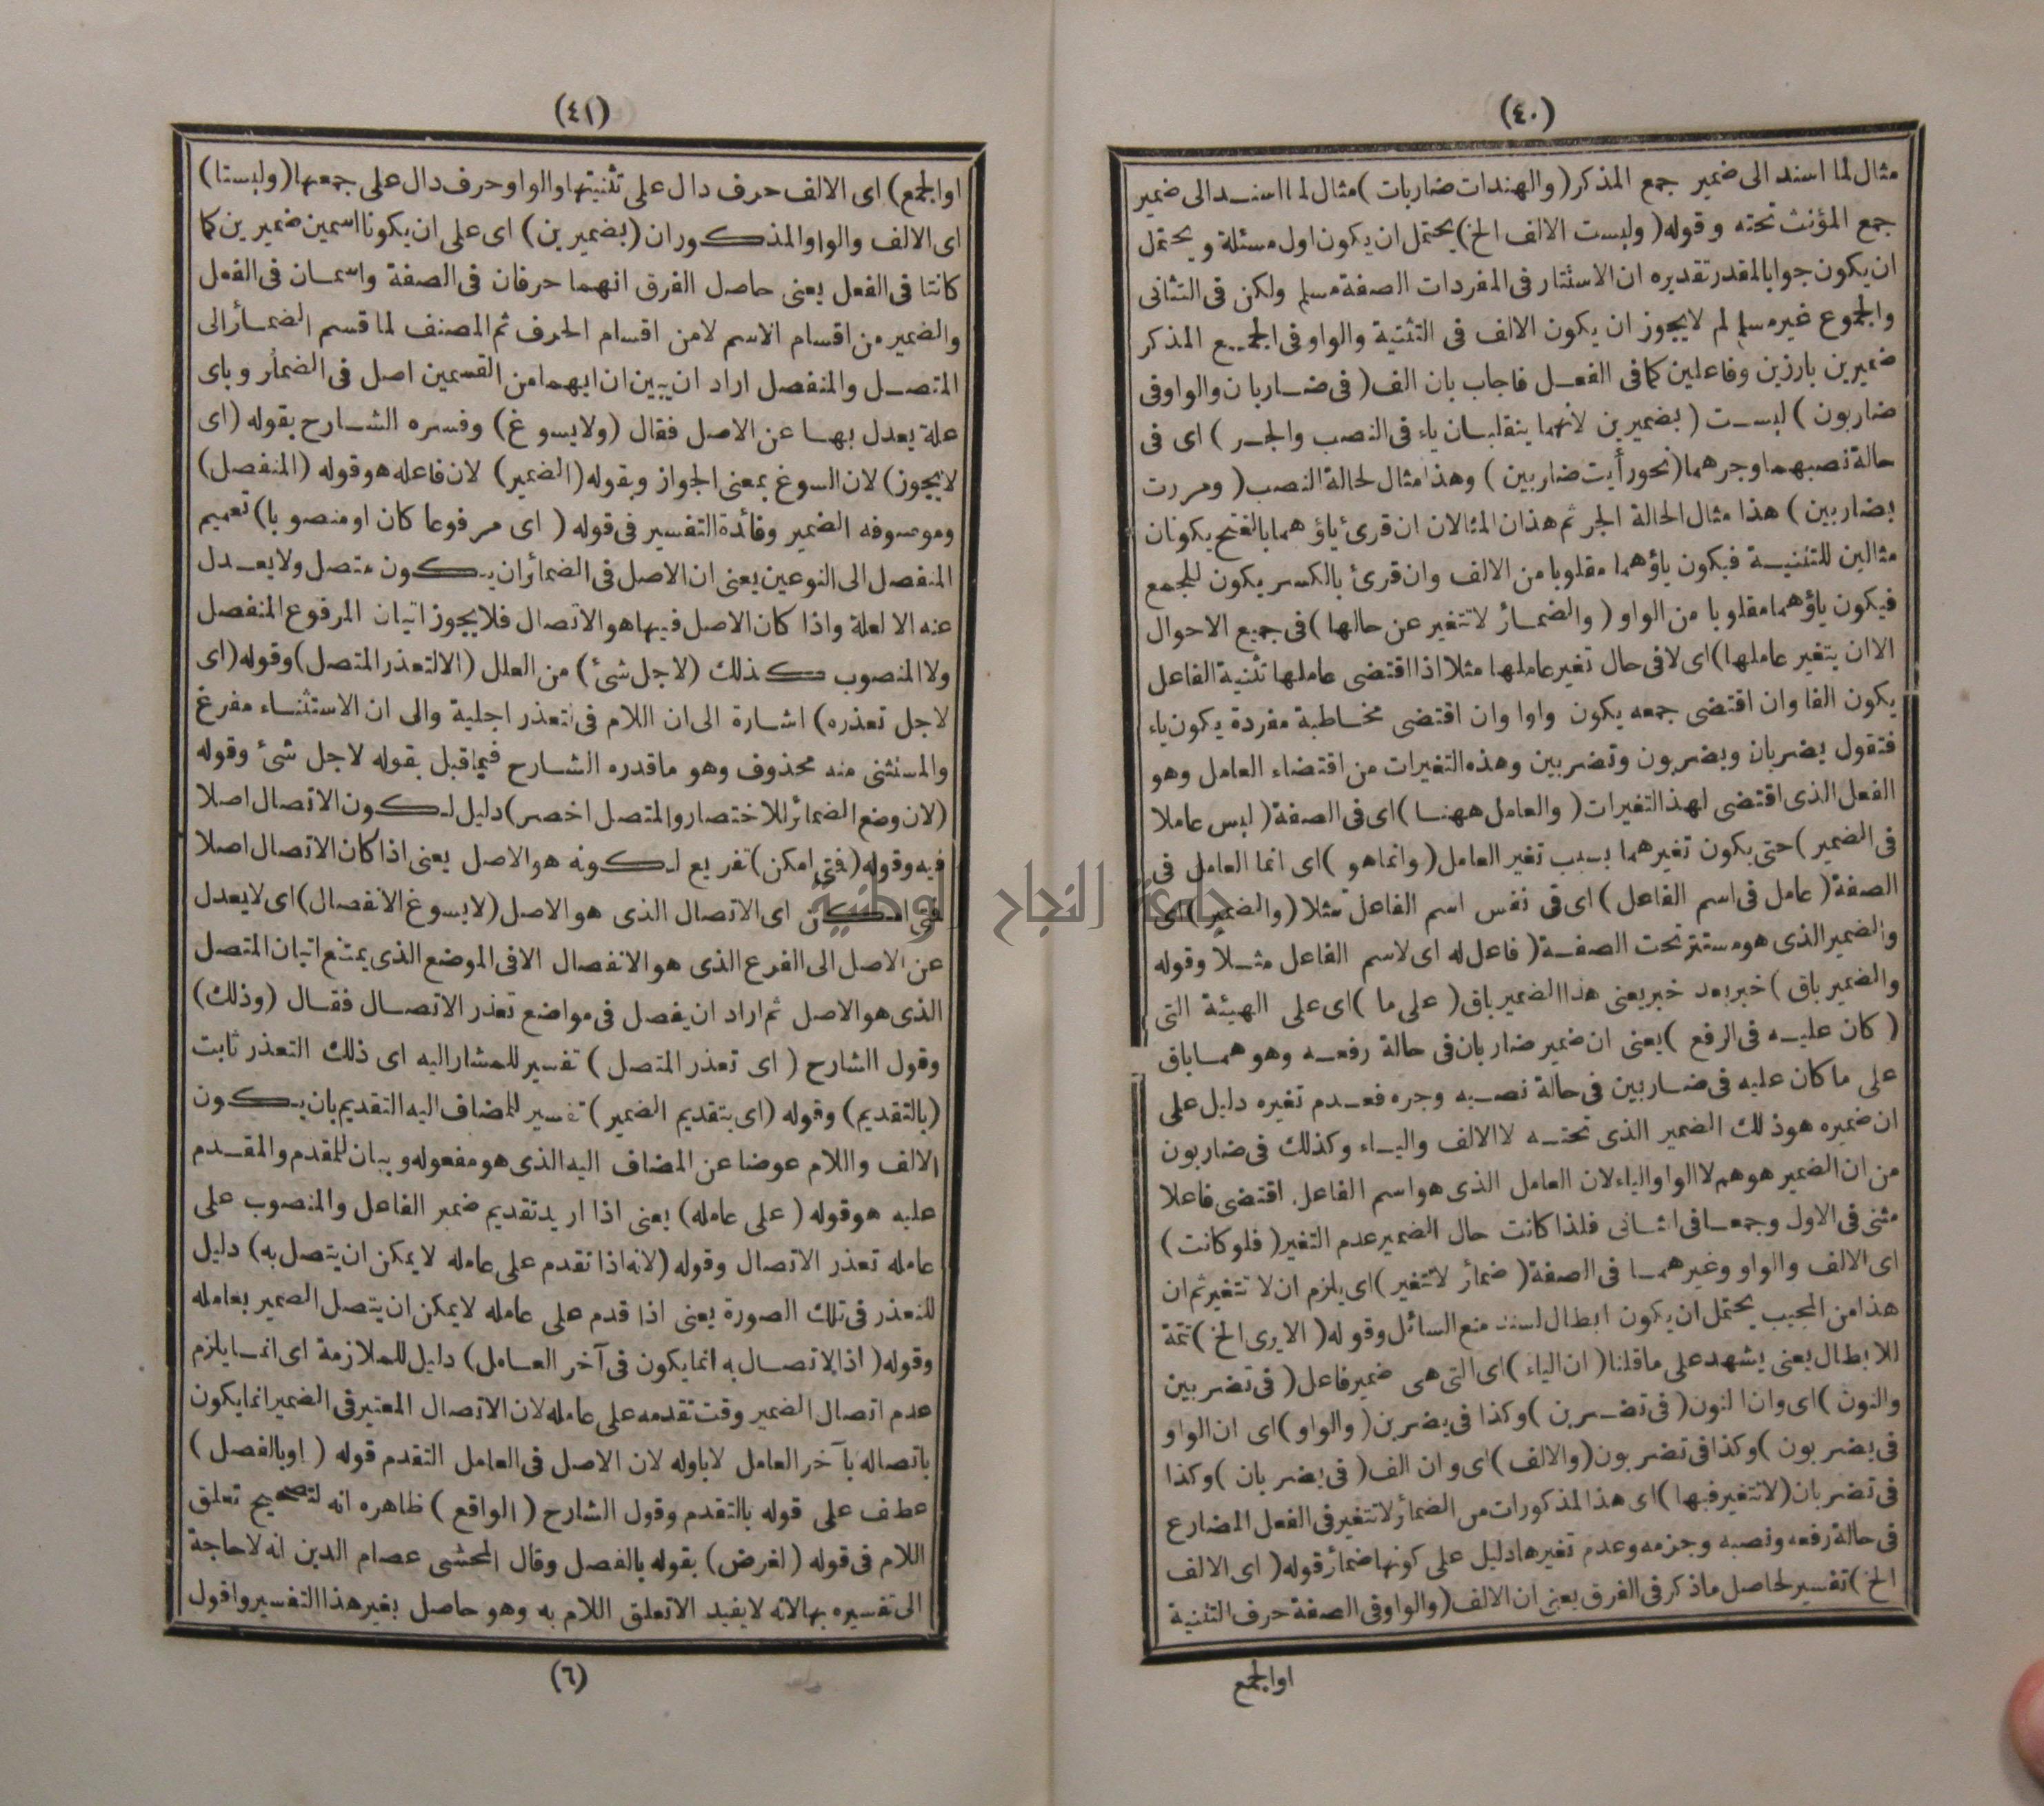 (٤٠)
مثال لما اسند الى ضمير جمع المذكر (والهندات ضاربات) مثال لما اسند الى ضمير
جمع المؤنث تحته وقوله (وليست الالف الخ) يحتمل ان يكون اول مسئلة ويحتمل
ان يكون جوابا لمقدر تقديره ان الاستتار فى المفردات الصفة مسلم ولكن فى التثانى
والجموع غير مسلم لم لايجوز ان يكون الالف فى التثنية والواو فى الجمع المذكر
ضميرين بارزين وفاعلين كما فى الفعل فاجاب بان الف (فى ضاربان والواو فى
ضاربون) ليست (بضميرين لانهما ينقلبان ياء فى النصب والجر) اى فى
حالة نصبهما وجرهما (نحو رأيت ضاربين) وهذا مثال لحالة النصب (ومررت
بضاربين) هذا مثال الحالة الجر ثم هذان المثالان ان قرئ ياؤهما بالفتح يكونان
مثالين للتثنية فيكون ياؤهما مقلوبا من الالف وان قرئ بالكسر يكون للجمع
فيكون ياؤهما مقلوبا من الواو (والضمائر لاتتغير عن حالها) فى جميع الاحوال
الا ان يتغير عاملها) اى لا فى حال تغير عاملها مثلا اذا اقتضى عاملها تثنية الفاعل
يكون الفا وان اقتضى جمعه يكون واوا وان اقتضى مخاطبة مفردة يكون ياء
فتقول يضربان ويضربون وتضربين وهذه التغيرات من اقتضاء العامل وهو
الفعل الذى اقتضى لهذ التغيرات (والعامل ههنا) اى فى الصفة (ليس عاملا
فى الضمير) حتى يكون تغيرهما بسبب تغير العامل (وانما هو) اى انما العامل فى
الصفة (عامل فى اسم الفاعل) اى فى نفس اسم الفاعل مثلا (والضمير) اى
والضمير الذى هو مستتر تحت الصفة (فاعل له اى لاسم الفاعل مثلا وقوله
والضمير باق) خبر بعد خبر يعنى هذا الضمير باق (على ما) اى على الهيئة التى
(كان عليه فى الرفع) يعنى ان ضمير ضاربان فى حالة رفعه وهو هما باق
على ما كان عليه فى ضاربين فى حالة نصبه وجره فعدم تغيره دليل على
ان ضميره هو ذلك الضمير الذى تحته لا الالف والياء وكذلك فى ضاربون
من ان الضمير هو هم لا الواو الياء لان العامل الذى هو اسم الفاعل اقتضى فاعلا
مثنى فى الاول وجمعا فى الثانى فلذا كانت حال الضمير عدم التغير (فلو كانت)
اى الالف والواو وغيرهما فى الصفة (ضمائر لاتتغير) اى يلزم ان لا تتغير ثم ان
هذا من المجيب يحتمل ان يكون ابطال لسند منع السائل وقوله (الا يرى الخ) تتمة
للابطال يعنى يشهد على ما قلنا (ان الياء) اى التى هى ضمير فاعل (فى تضربين
والنون) اى وان النون (فى تضربن) وكذا فى يضربن (والواو) اى ان الواو
فى يضربون) وكذا فى تضربون (والالف) اى وان الف (فى يضربان) وكذا
فى تضربان (لاتتغير فيها) اى هذ المذكورات من الضمائر لاتتغير فى الفعل المضارع
فى حالة رفعه ونصبه وجزمه وعدم تغيرها دليل على كونها ضمائر قوله (اى الالف
الخ) تفسير لحاصل ما ذكر فى الفرق يعنى ان الالف (والواو فى الصفة حرف التثنية
او الجمع
(٤١)
او الجمع) اى الالف حرف دال على تثنيتها والواو حرف دال على جمعها (وليستا)
اى الالف والواو المذكوران (بضميرين) اى على ان يكونا اسمين ضميرين كما
كانتا فى الفعل يعنى حاصل الفرق انهما حرفان فى الصفة واسمان فى الفعل
والضمير من اقسام الاسم لا من اقسام الحرف ثم المصنف لما قسم الضمائر الى
المتصل والمنفصل اراد ان يبين ان ايهما من القسمين اصل فى الضمائر وباى
علة يعدل بها عن الاصل فقال (ولا يسوغ) وفسره الشارح بقوله (اى
لا يجوز) لان السوغ بمعنى الجواز وبقوله (الضمير) لان فاعله هو قوله (المنفصل)
وموصوفه الضمير وفائدة التفسير فى قوله (اى مرفوعا كان او منصوبا) تعميم
المنفصل الى النوعين يعنى ان الاصل فى الضمائر ان يكون متصل ولا يعدل
عنه الا لعلة واذا كان الاصل فيها هو الاتصال فلا يجوز اتيان المرفوع المنفصل
ولا المنصوب كذلك (لاجل شئ) من العلل (الا لتعذر المتصل) وقوله (اى
لاجل تعذره) اشارة الى ان اللام فى لتعذر اجلية والى ان الاستثناء مفرغ
والمستثنى منه محذوف وهو ما قدره الشارح فيما قبل بقوله لاجل شئ وقوله
(لان وضع الضمائر للاختصار والمتصل اخصر) دليل لكون الاتصال اصلا
فيه وقوله (فتى امكن) تفريع لكونه هو الاصل يعنى اذا كان الاتصال اصلا
فتى امكن اى الاتصال الذى هو الاصل (لا يسوغ الانفصال) اى لا يعدل
عن الاصل الى الفرع الذى هو الانفصال الا فى الموضع الذى يمتنع اتيان المتصل
الذى هو الاصل ثم اراد ان يفصل فى مواضع تعذر الاتصال فقال (وذلك)
وقول الشارح (اى تعذر المتصل) تفسير للمشار اليه اى ذلك التعذر ثابت
(بالتقديم) وقوله (اى بتقديم الضمير) تفسير للمضاف اليه التقديم بان يكون
الالف واللام عوضا عن المضاف اليه الذى هو مفعوله وبيان للمقدم والمقدم
عليه هو قوله (على عامله) يعنى اذا اريد تقديم ضمير الفاعل والمنصوب على
عامله تعذر الاتصال وقوله (لانه اذا تقدم على عامله لا يمكن ان يتصل به) دليل
للتعذر فى تلك الصورة يعنى اذا قدم على عامله لا يمكن ان يتصل الضمير بعامله
وقوله (اذ الاتصال به انما يكون فى آخر العامل) دليل للملازمة اى انما يلزم
عدم اتصال الضمير وقت تقدمه على عامله لان الاتصال المعتبر فى الضمير انما يكون
باتصاله بآخر العامل لا باوله لان الاصل فى العامل التقدم قوله (او بالفصل)
عطف على قوله بالتقدم وقول الشارح (الواقع) ظاهره انه لتصحيح تعلق
اللام فى قوله (لغرض) بقوله بالفصل وقال المحشى عصام الدين انه لا حاجة
الى تفسيره بها لانه لا يفيد الا تعلق اللام به وهو حاصل بغير هذا التفسير واقول
(٦)
جامعة النجاح الوطنية